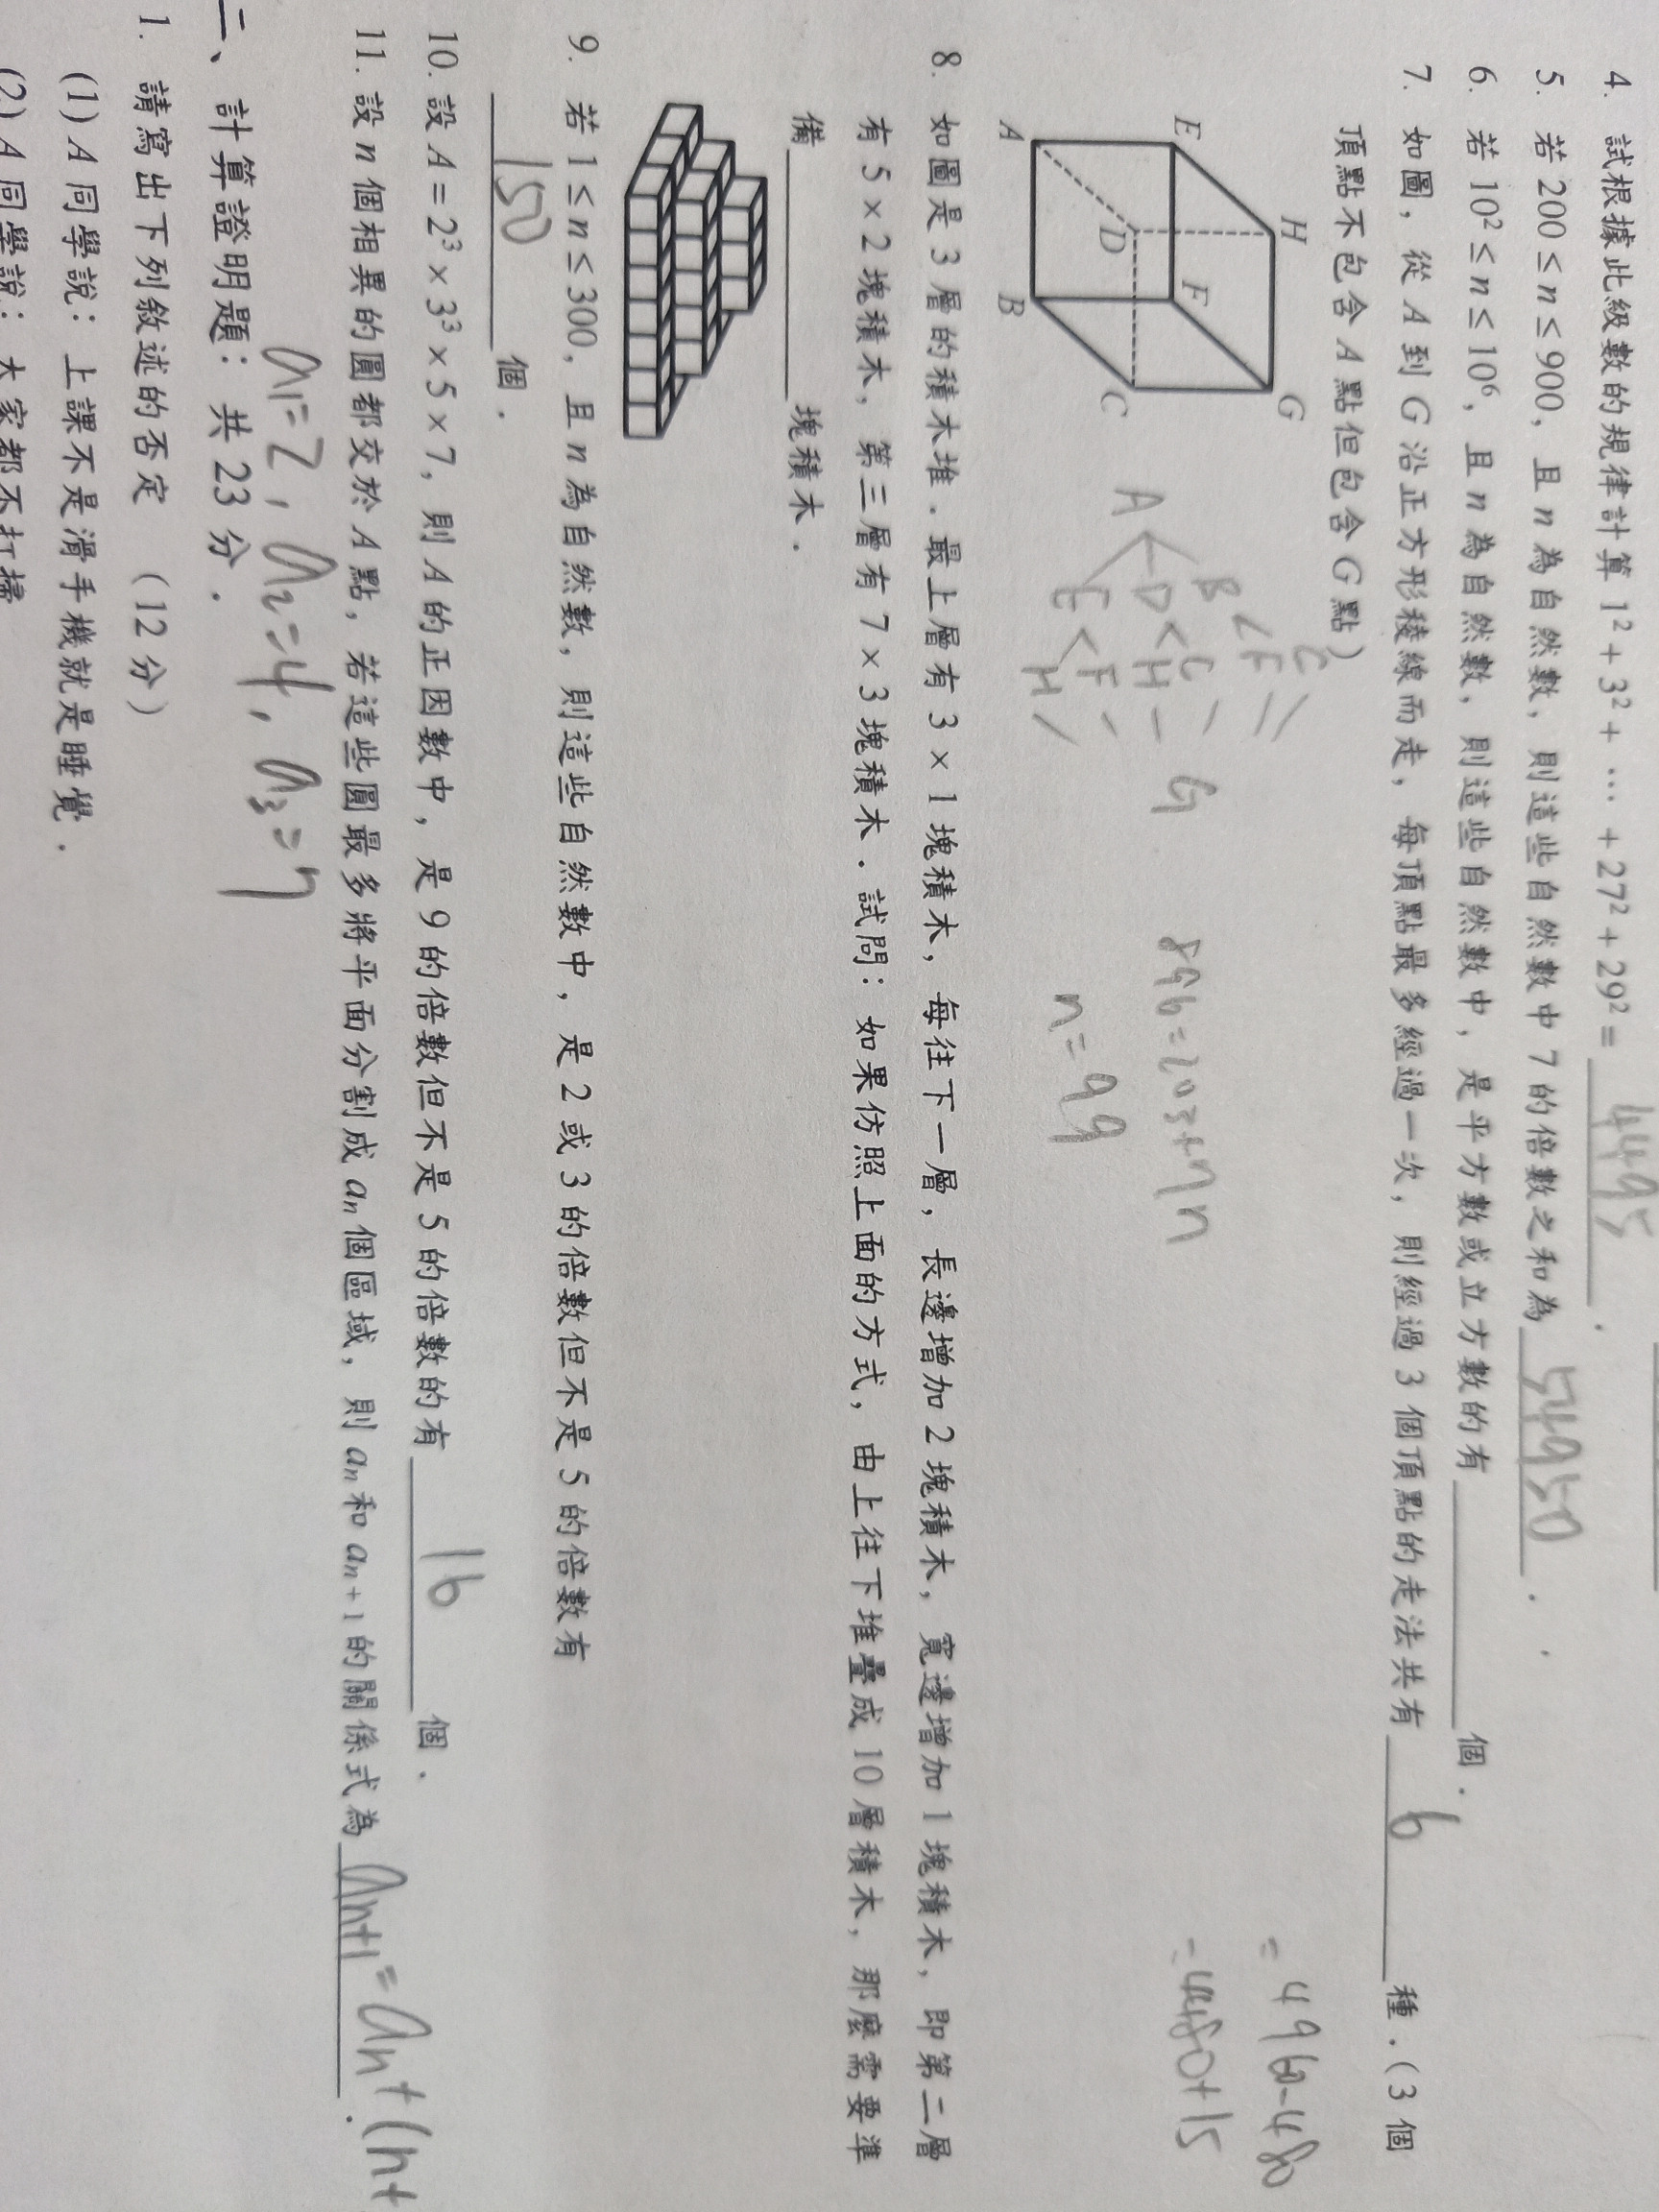 4. 試根據此級數的規律計算 1² + 3² + … + 27² + 29² = 4495 .
5. 若 200 ≤ n ≤ 900, 且 n 為自然數, 則這些自然數中 7 的倍數之和為 54950 .
6. 若 10² ≤ n ≤ 10⁶, 且 n 為自然數, 則這些自然數中, 是平方數或立方數的有 個 .
7. 如圖, 從 A 到 G 沿正方形稜線而走, 每頂點最多經過一次, 則經過 3 個頂點的走法共有 6 種 . (3 個
頂點不包含 A 點但包含 G 點)
E H
F G
A D
B C
A
B C
F
D C
H
E F
H
G
896 = 203 + 7n
n = 99
= 4960 - 480
= 4480 + 15
8. 如圖是 3 層的積木堆 . 最上層有 3 × 1 塊積木, 每往下一層, 長邊增加 2 塊積木, 寬邊增加 1 塊積木, 即第二層
有 5 × 2 塊積木, 第三層有 7 × 3 塊積木 . 試問: 如果仿照上面的方式, 由上往下堆疊成 10 層積木, 那麼需要準
備 塊積木 .
9. 若 1 ≤ n ≤ 300, 且 n 為自然數, 則這些自然數中, 是 2 或 3 的倍數但不是 5 的倍數有
150 個 .
10. 設 A = 2³ × 3³ × 5 × 7, 則 A 的正因數中, 是 9 的倍數但不是 5 的倍數的有 16 個 .
11. 設 n 個相異的圓都交於 A 點, 若這些圓最多將平面分割成 aₙ 個區域, 則 aₙ 和 aₙ₊₁ 的關係式為 aₙ₊₁ = aₙ + (n+
a₁ = 2, a₂ = 4, a₃ = 7
二、計算證明題: 共 23 分 .
1. 請寫出下列敘述的否定 (12 分)
(1) A 同學說: 上課不是滑手機就是睡覺 .
(2) A 同學說: 大家都不打掃